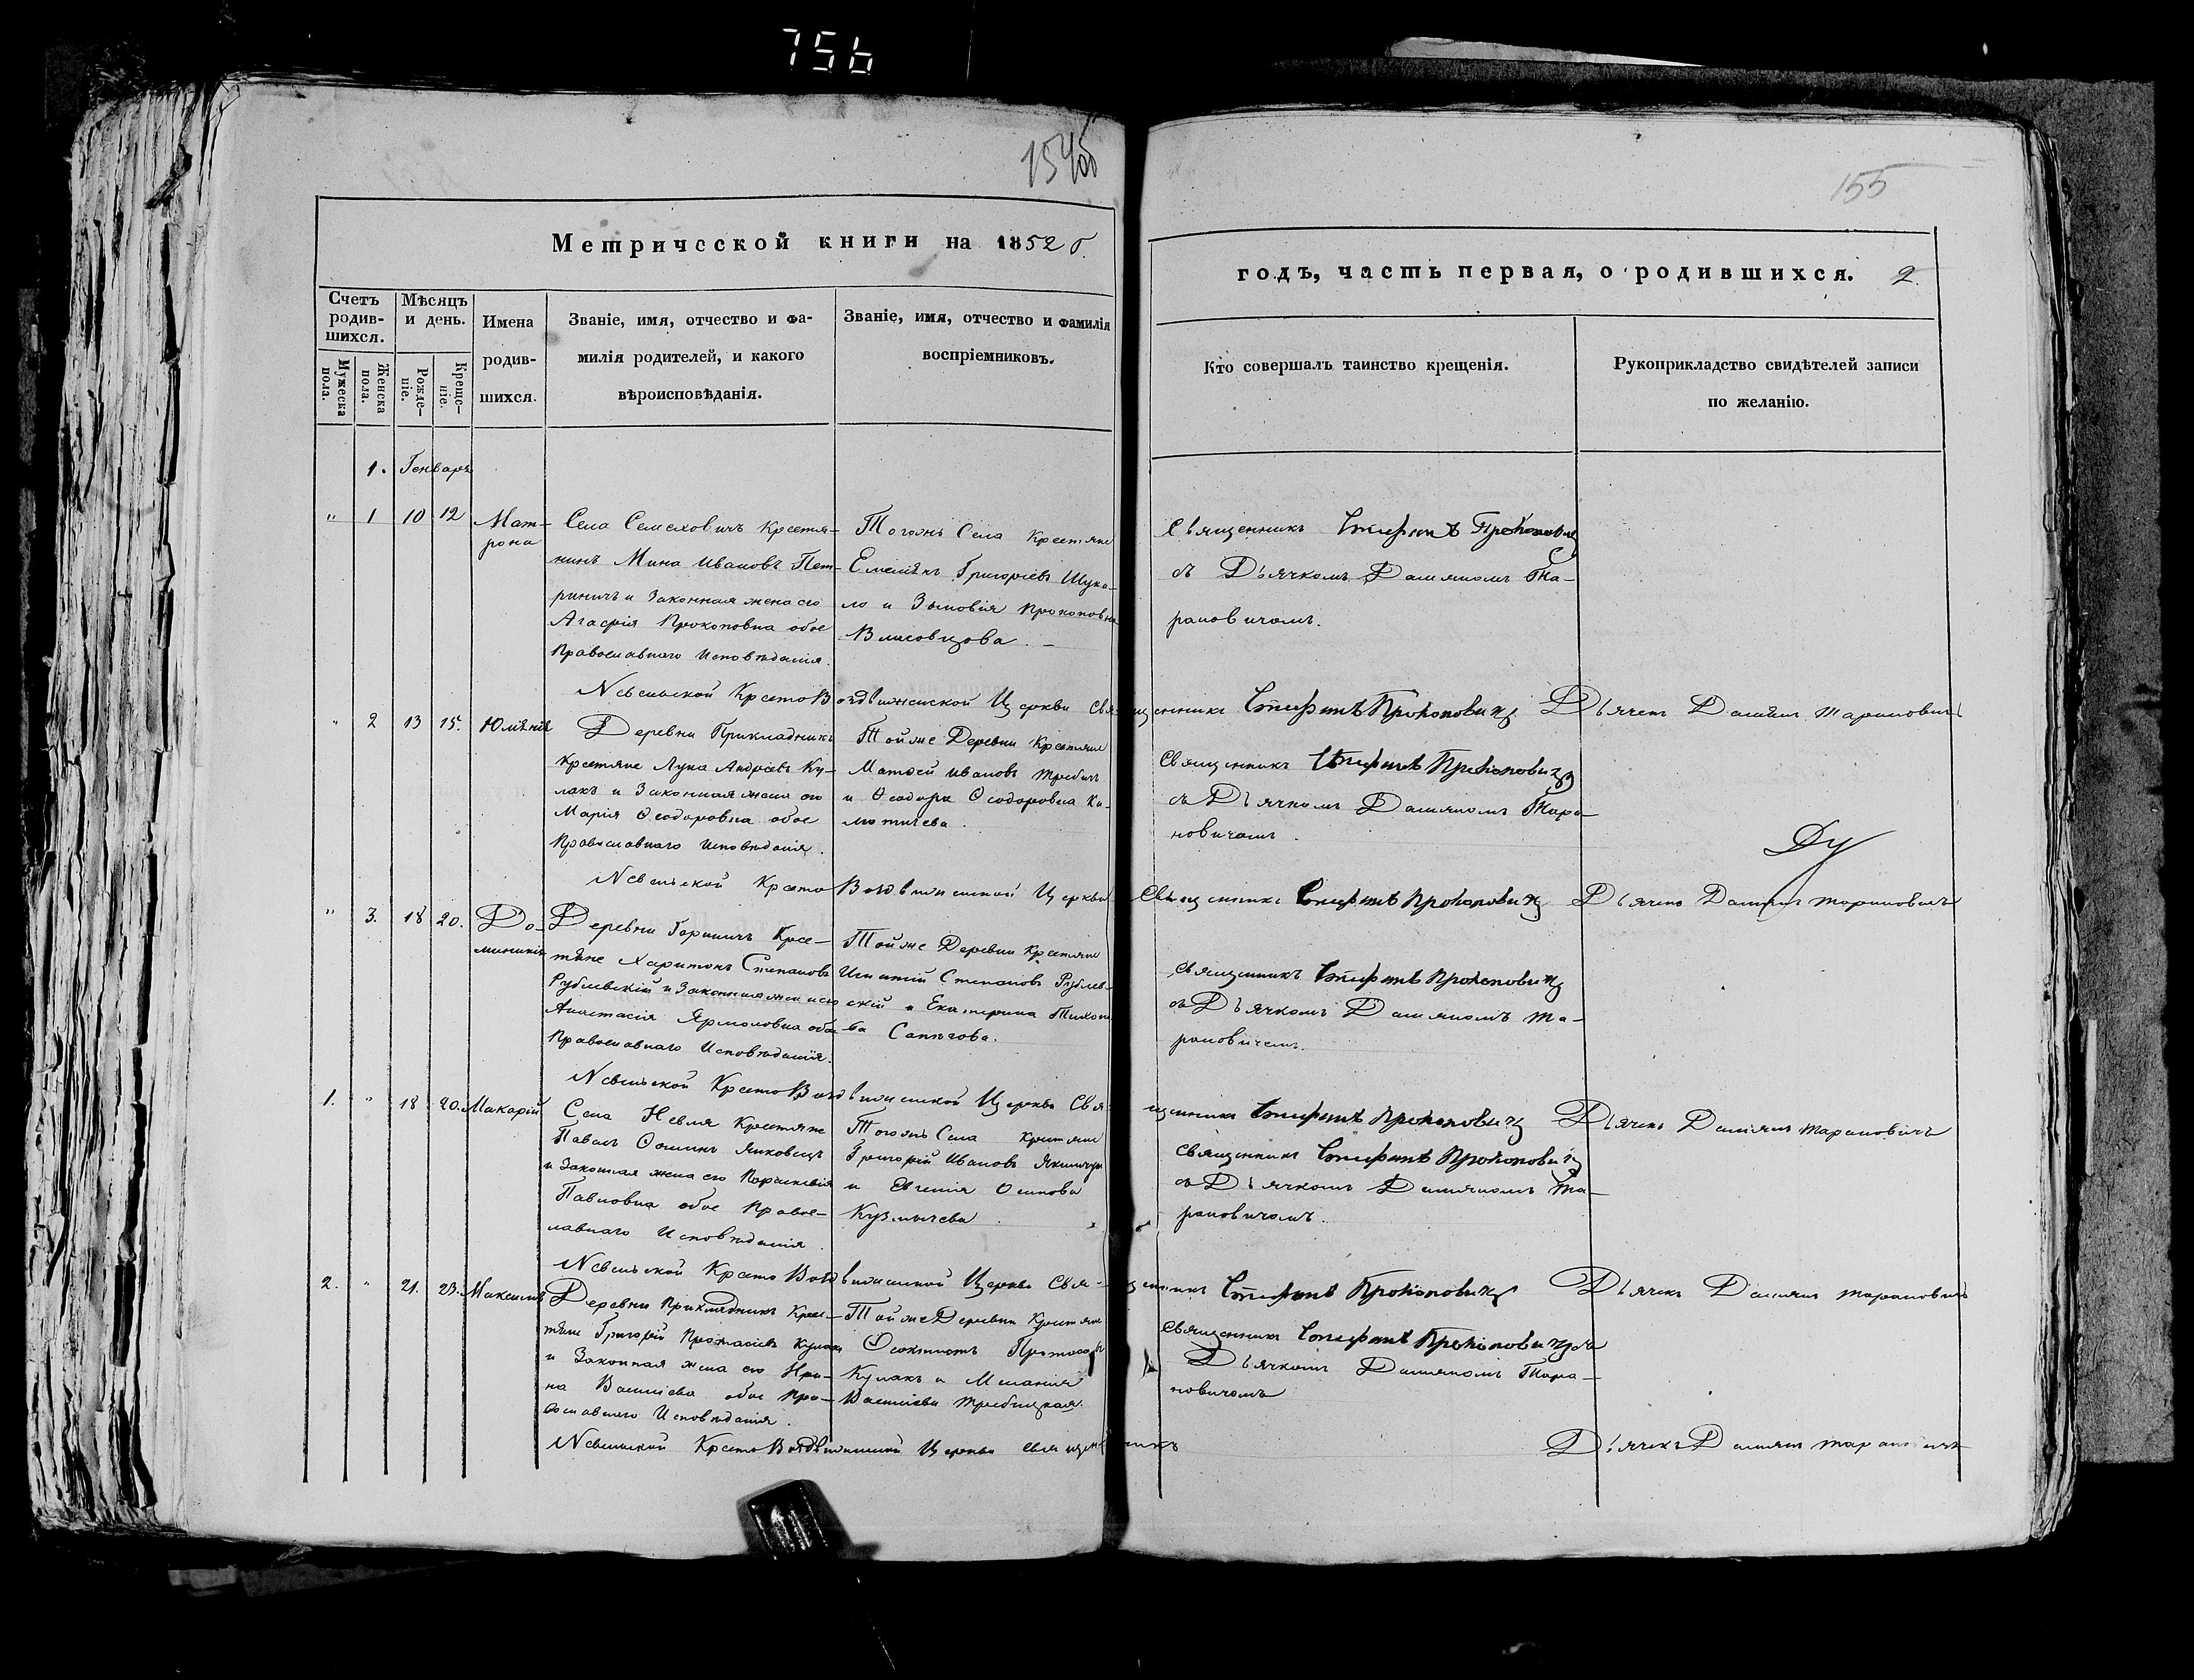 756
155
Метрической книги на 1852 г.
годъ, часть первая, о родившихся. 2.
Счетъ родив-
шихся.
Мѣсяцъ
и день.
Мужеска
пола.
Женска
пола.
Рожде-
ніе.
Креще-
ніе.
Имена
родив-
шихся.
Званіе, имя, отчество и фа-
милія родителей, и какого
вѣроисповѣданія.
Званіе, имя, отчество и фамилія
воспріемниковъ.
Кто совершалъ таинство крещенія.
Рукоприкладство свидѣтелей записи
по желанію.
1. Генваря
" 1 10 12
Мат-
рона
Села Семеховичъ Крестья-
нинъ Мина Ивановъ Пет-
риничъ и Законная жена его
Агафія Прокоповна обое
Православнаго Исповѣданія.
Тогожъ Села Крестяне
Емеліянъ Григоріевъ
и Прокоповна
Священникъ Стефанъ Прокоповичъ
съ Дьячкомъ Даміяномъ Та-
рановичомъ.
Невельской КрестоВоздвиженской Церкви Священникъ Стефанъ Прокоповичъ Дьячекъ Даміянъ Тарановичъ
" 2 13 15.
Юліянія
Деревни Прикладникъ
Крестяне Лука Андреевъ Ку-
лакъ и Законная жена его
Марія Ѳеодоровна обое
Православнаго Исповѣданія.
Тойже Деревни Крестяне
Матѳей Ивановъ
и Ѳеодора Ѳеодоровна
Священникъ Стефанъ Прокоповичъ
съ Дьячкомъ Даміяномъ Тара-
новичомъ.
Невельской Кресто Воздвиженской Церкви Священникъ Стефанъ Прокоповичъ Дьячекъ Даміянъ Тарановичъ
" 3. 18 20.
До-
миникія
Деревни Горничъ Крес-
тяне Харитонъ Степановъ
Рублевскій и Законная жена его
Анастасія Ярмоловна обое
Православнаго Исповѣданія.
Тойже Деревни Крестяне
Игнатій Степановъ Рублев-
скій и Екатерина
Сапѣгова.
Священникъ Стефанъ Прокоповичъ
съ Дьячкомъ Даміяномъ Та-
рановичемъ.
Невельской КрестоВоздвиженской Церкви Священникъ Стефанъ Прокоповичъ Дьячекъ Даміянъ Тарановичъ
1. " 18 20.
Макарій
Села Невля Крестяне
Павелъ Ѳоминъ Янковецъ
и Законная жена его Параскевія
Павловна обое Правос-
лавнаго Исповѣданія.
Тогожъ Села Крестяне
Григорій Ивановъ
и Евгенія Осипова
Кузмичева
Священникъ Стефанъ Прокоповичъ
съ Дьячкомъ Даміяномъ Та-
рановичомъ.
Невельской КрестоВоздвиженской Церкви Священникъ Стефанъ Прокоповичъ Дьячекъ Даміянъ Тарановичъ
2. " 21. 23.
Максимъ
Деревни Прикладникъ Крес-
тяне Григорій Протасіевъ Кулакъ
и Законная жена его Ири-
на Василіева обое Пра-
вославнаго Исповѣданія.
Тойже Деревни Крестяне
Ѳеоктистъ
Кулакъ и Меланія
Василіева
Священникъ Стефанъ Прокоповичъ съ
Дьячкомъ Даміяномъ Тара-
новичомъ
Невельской КрестоВоздвиженской Церкви Священникъ
Дьячекъ Даміянъ Тарановичъ